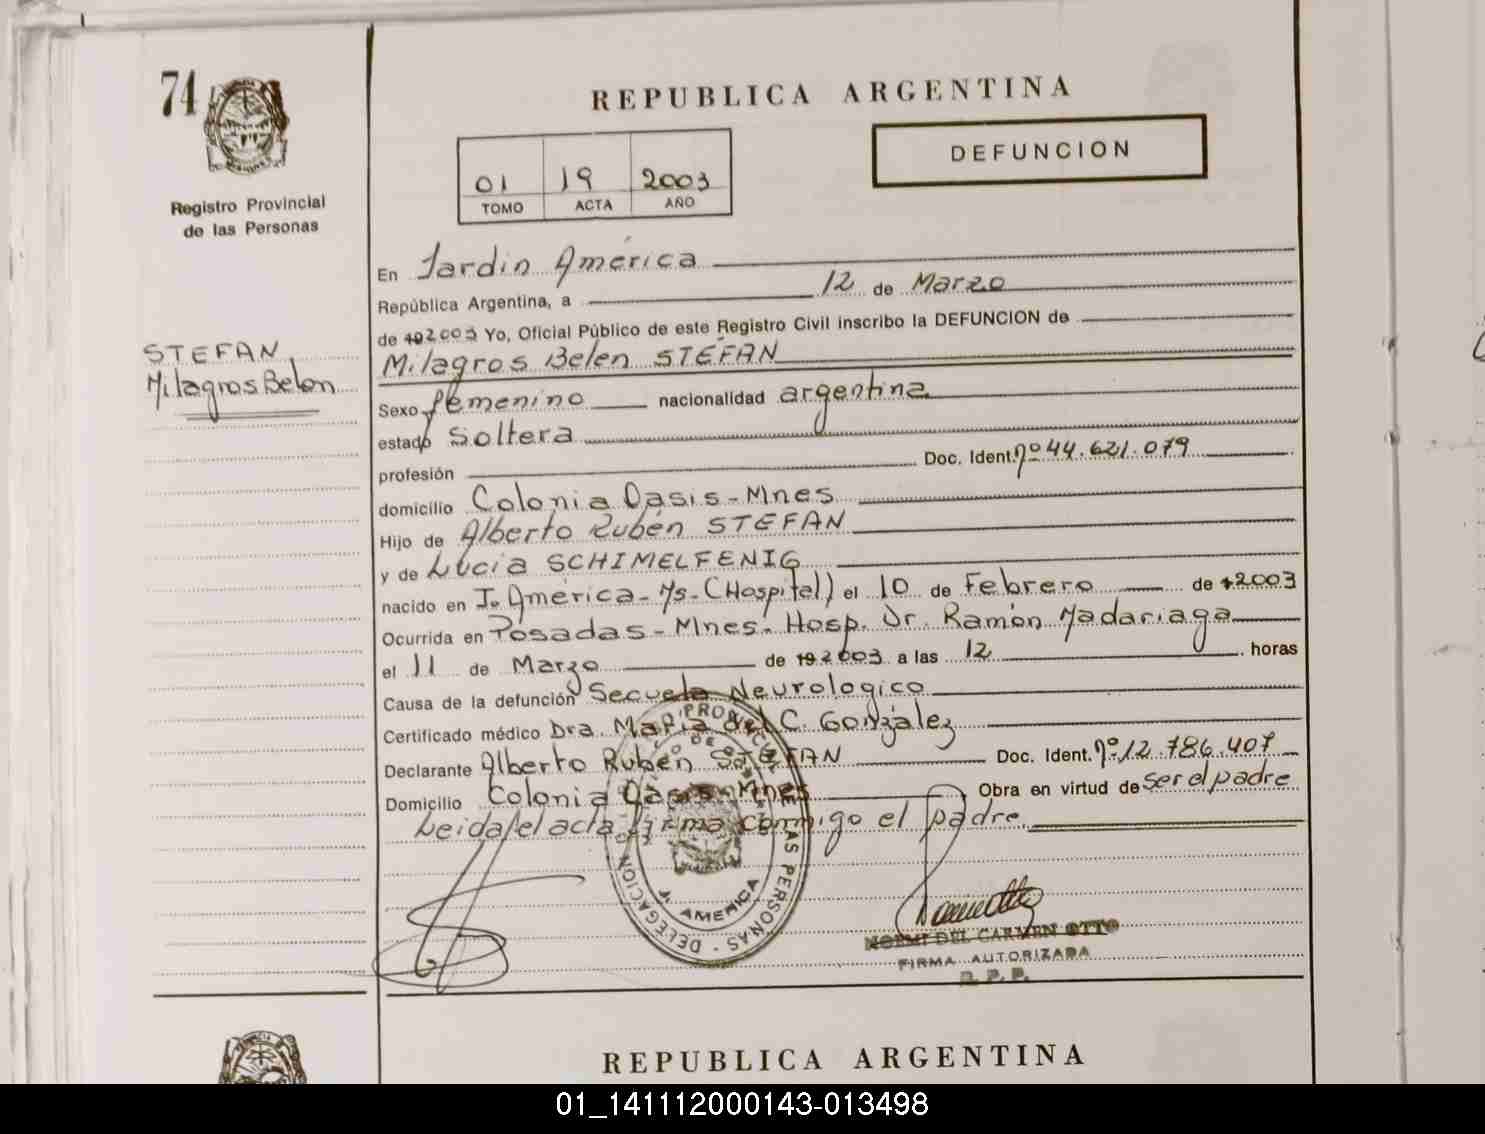 74
Registro Provincial
de las Personas
STEFAN,
Milagros Belen
REPUBLICA ARGENTINA
DEFUNCION
01 19 2003
TOMO ACTA AÑO
En Jardin América
República Argentina, a 12 de Marzo
de 192003 Yo, Oficial Público de este Registro Civil inscribo la DEFUNCION de
Milagros Belen STEFAN
Sexo femenino nacionalidad argentina
estado Soltera
profesión Doc. Ident. nº 44.621.079
domicilio Colonia Oasis-Mnes
Hijo de Alberto Rubén STEFAN
y de Lucia SCHIMELFENIG
nacido en J. América-Ms-(Hospital) el 10 de Febrero de 12003
Ocurrida en Posadas-Mnes. Hosp. Dr. Ramón Madariaga
el 11 de Marzo de 192003 a las 12 horas
Causa de la defunción Secuela Neurologico
Certificado médico Dra. Maria del C. González
Declarante Alberto Rubén STEFAN Doc. Ident. nº 12.786.407
Domicilio Colonia Oasis-Mnes Obra en virtud de ser el padre
Leida el acta firma conmigo el padre.
DELEGACION J. AMERICA
DE LAS PERSONAS
NOEMI DEL CARMEN OTTO
FIRMA AUTORIZADA
R. P. P.
REPUBLICA ARGENTINA
01_141112000143-013498